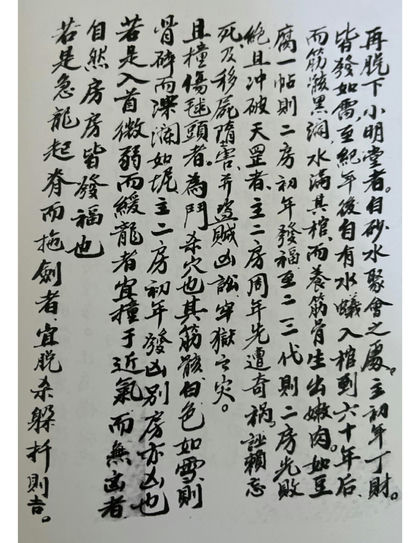 再脱下小明堂者。自砂水聚會之處。主初年丁財。
皆發如儒，至紀年後自有水蟻入棺到六十年后，
而筋骸黑洞，水滿其棺而養筋骨生出嫩肉。如豆
腐一帖則二房初年發福至二三代則二房先敗
絕且冲破天罡者，主二房周年先遭奇禍，誣賴忘
死及移屍陷害，并盗賊凶訟牢獄之灾。
且撞傷毬頭者。為鬥杀穴也其筋骸白色如雪則
骨碎而濼瀾如坭主二房初年發凶别房亦凶也
若是入首微弱而緩龍者宜撞于近氣而無凶者
自然房房皆發福也
若是急龍起脊而拖劍者宜脱杀躲折則吉。